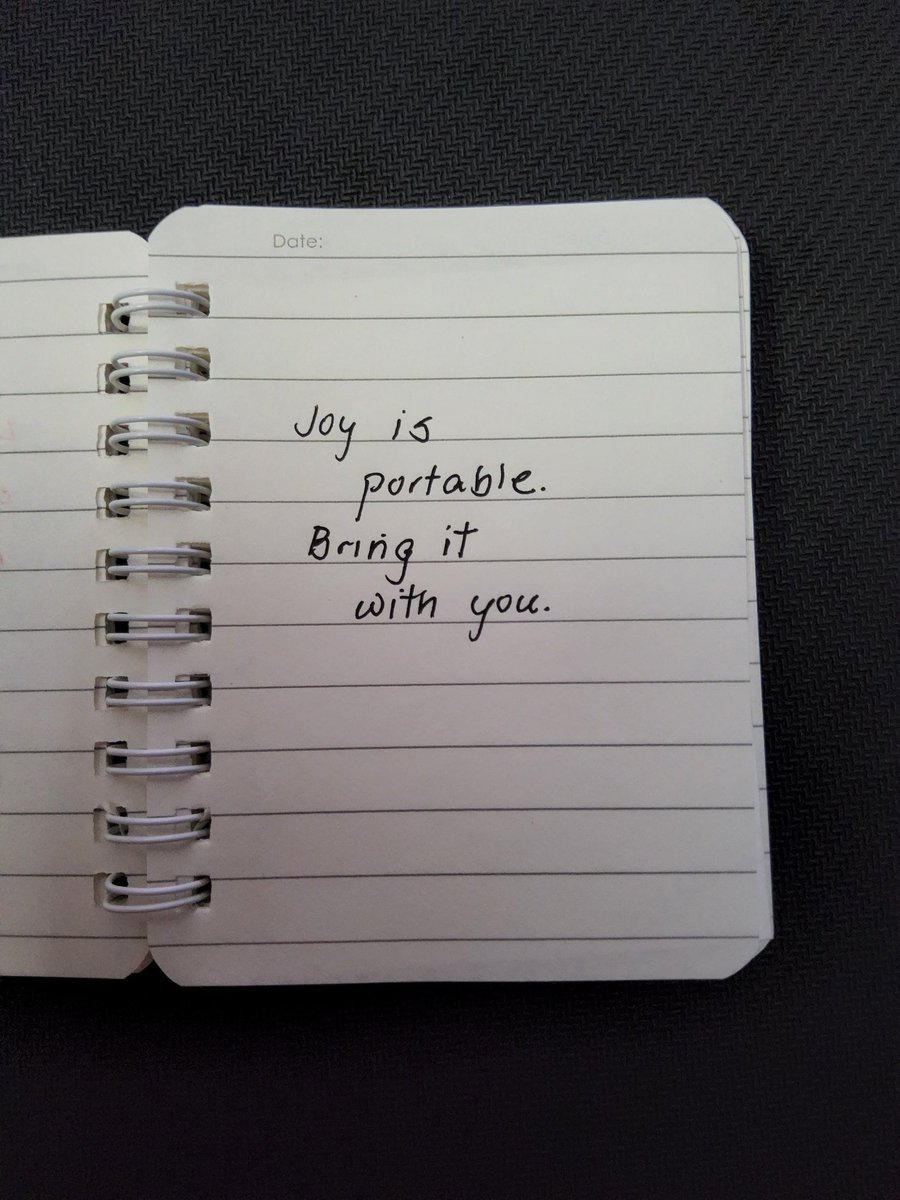 Date:
Joy is
portable.
Bring it
with you.